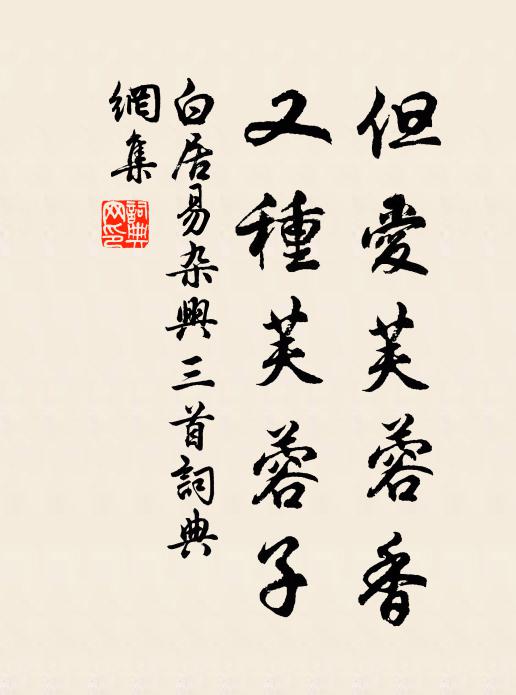 但愛芙蓉香
又種芙蓉子
白居易杂興三首詞典
網集
詞典
网印